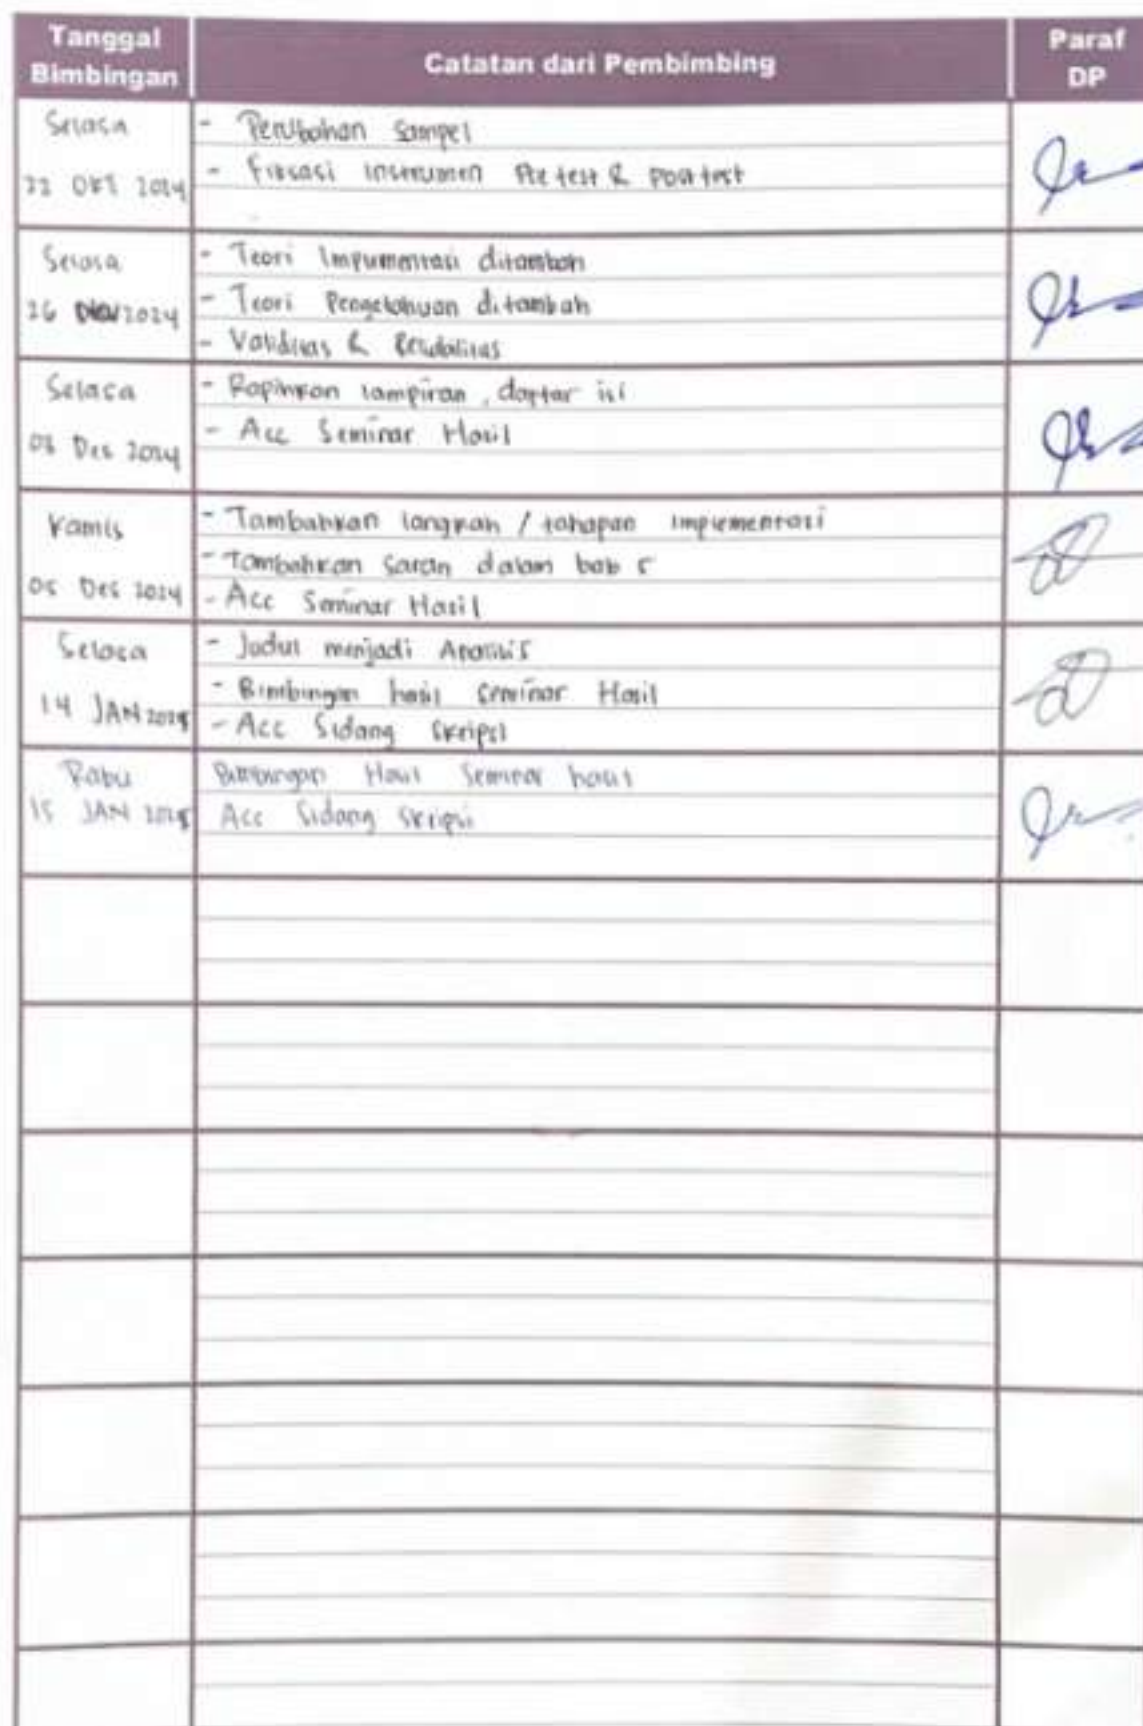 Tanggal Bimbingan
Catatan dari Pembimbing
Paraf DP
Selasa
22 OKT 2024
- Perubahan Sampel
- Fiksasi instrumen Pre test & post test
Selasa
26 Nov 2024
- Teori Implementasi ditambah
- Teori Pengetahuan ditambah
- Validitas & Reliabilitas
Selasa
Des 2024
- Rapihkan lampiran, daftar isi
- Acc Seminar Hasil
Kamis
05 Des 2024
- Tambahkan langkah / tahapan implementasi
- Tambahkan saran dalam bab 5
- Acc Seminar Hasil
Selasa
14 JAN 2025
- Judul menjadi Analisis
- Bimbingan hasil seminar Hasil
- Acc Sidang Skripsi
Rabu
15 JAN 2025
Bimbingan Hasil Seminar hasil
Acc Sidang Skripsi